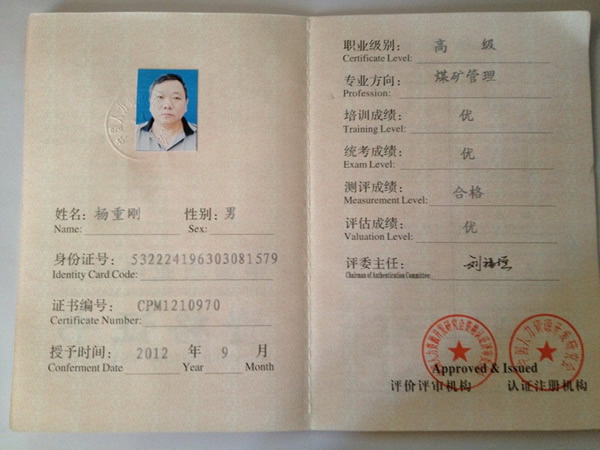 姓名: 杨重刚 性别: 男
Name: Sex:
身份证号: 532224196303081579
Identity Card Code:
证书编号: CPM1210970
Certificate Number:
授予时间: 2012 年 9 月
Conferment Date Year Month
职业级别: 高 级
Certificate Level:
专业方向: 煤矿管理
Profession:
培训成绩: 优
Training Level:
统考成绩: 优
Exam Level:
测评成绩: 合格
Measurement Level:
评估成绩: 优
Valuation Level:
评委主任:
Chairman of Authentication Committee:
Approved & Issued
评价评审机构 认证注册机构